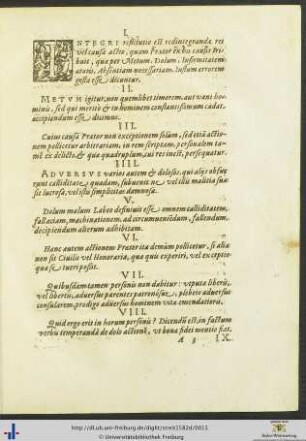 I.
INTEGRI restitutio est redintegranda rei
vel causæ actio, quam Prætor in his causis tri-
buit, quæ per Metum, Dolum, Infirmitatem
ætatis, Absentiam necessariam, Iustum errorem
gesta esse dicuntur.
II.
METVM igitur, non quemlibet timorem, aut vani ho-
minis, sed qui meritò & in hominem constantissimum cadat,
accipiendum esse
III.
Cuius causa Prætor non exceptionem solùm, sed etiã actio-
nem pollicetur arbitrariam, in rem scriptam, personalem ta-
mē ex delicto, & qua quadruplum, aut rei
IIII.
ADVERSVS varios autem & dolosos, qui alijs obfue-
runt calliditate quadam, subuenit ne vel illis malitia sua
sit lucrosa, vel istis simplicitas damnosa.
V.
Dolum malum Labeo definiuit esse, omnem calliditatem,
fallaciam, machinationem, ad circumueniēdum, fallendum,
decipiendum alterum adhibitam.
VI.
Hanc autem actionem Prætor ita demùm pollicetur, si alia
non sit Ciuilis vel Honoraria, qua quis experiri, vel exceptio
qua se tueri possit.
VII.
Quibusdam tamen personis non dabitur: veputa liberis,
vel libertis, aduersus parentes patronósue, plebeio aduersus
consularem, prodigo aduersus hominem vitæ emendatioris.
VIII.
Quid ergo erit in harum personis? Dicendũ est, in factum
verbis temperandã de dolo actionē, vt bonæ fidei mentio fiat.
A 3 IX.
http://dl.ub.uni-freiburg.de/diglit/
© Universitätsbibliothek Freiburg